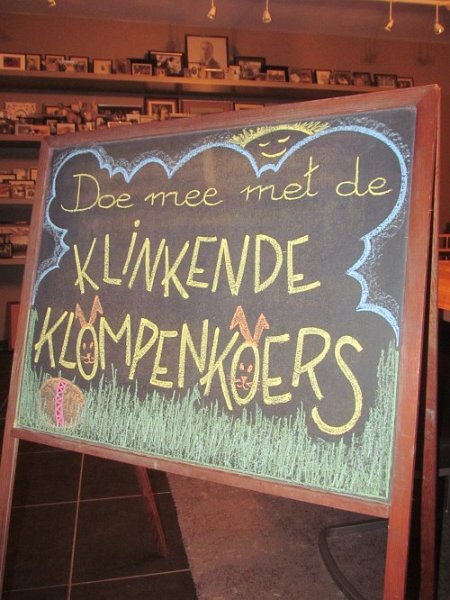 Doe mee met de
KLINKENDE
KLOMPENKOERS